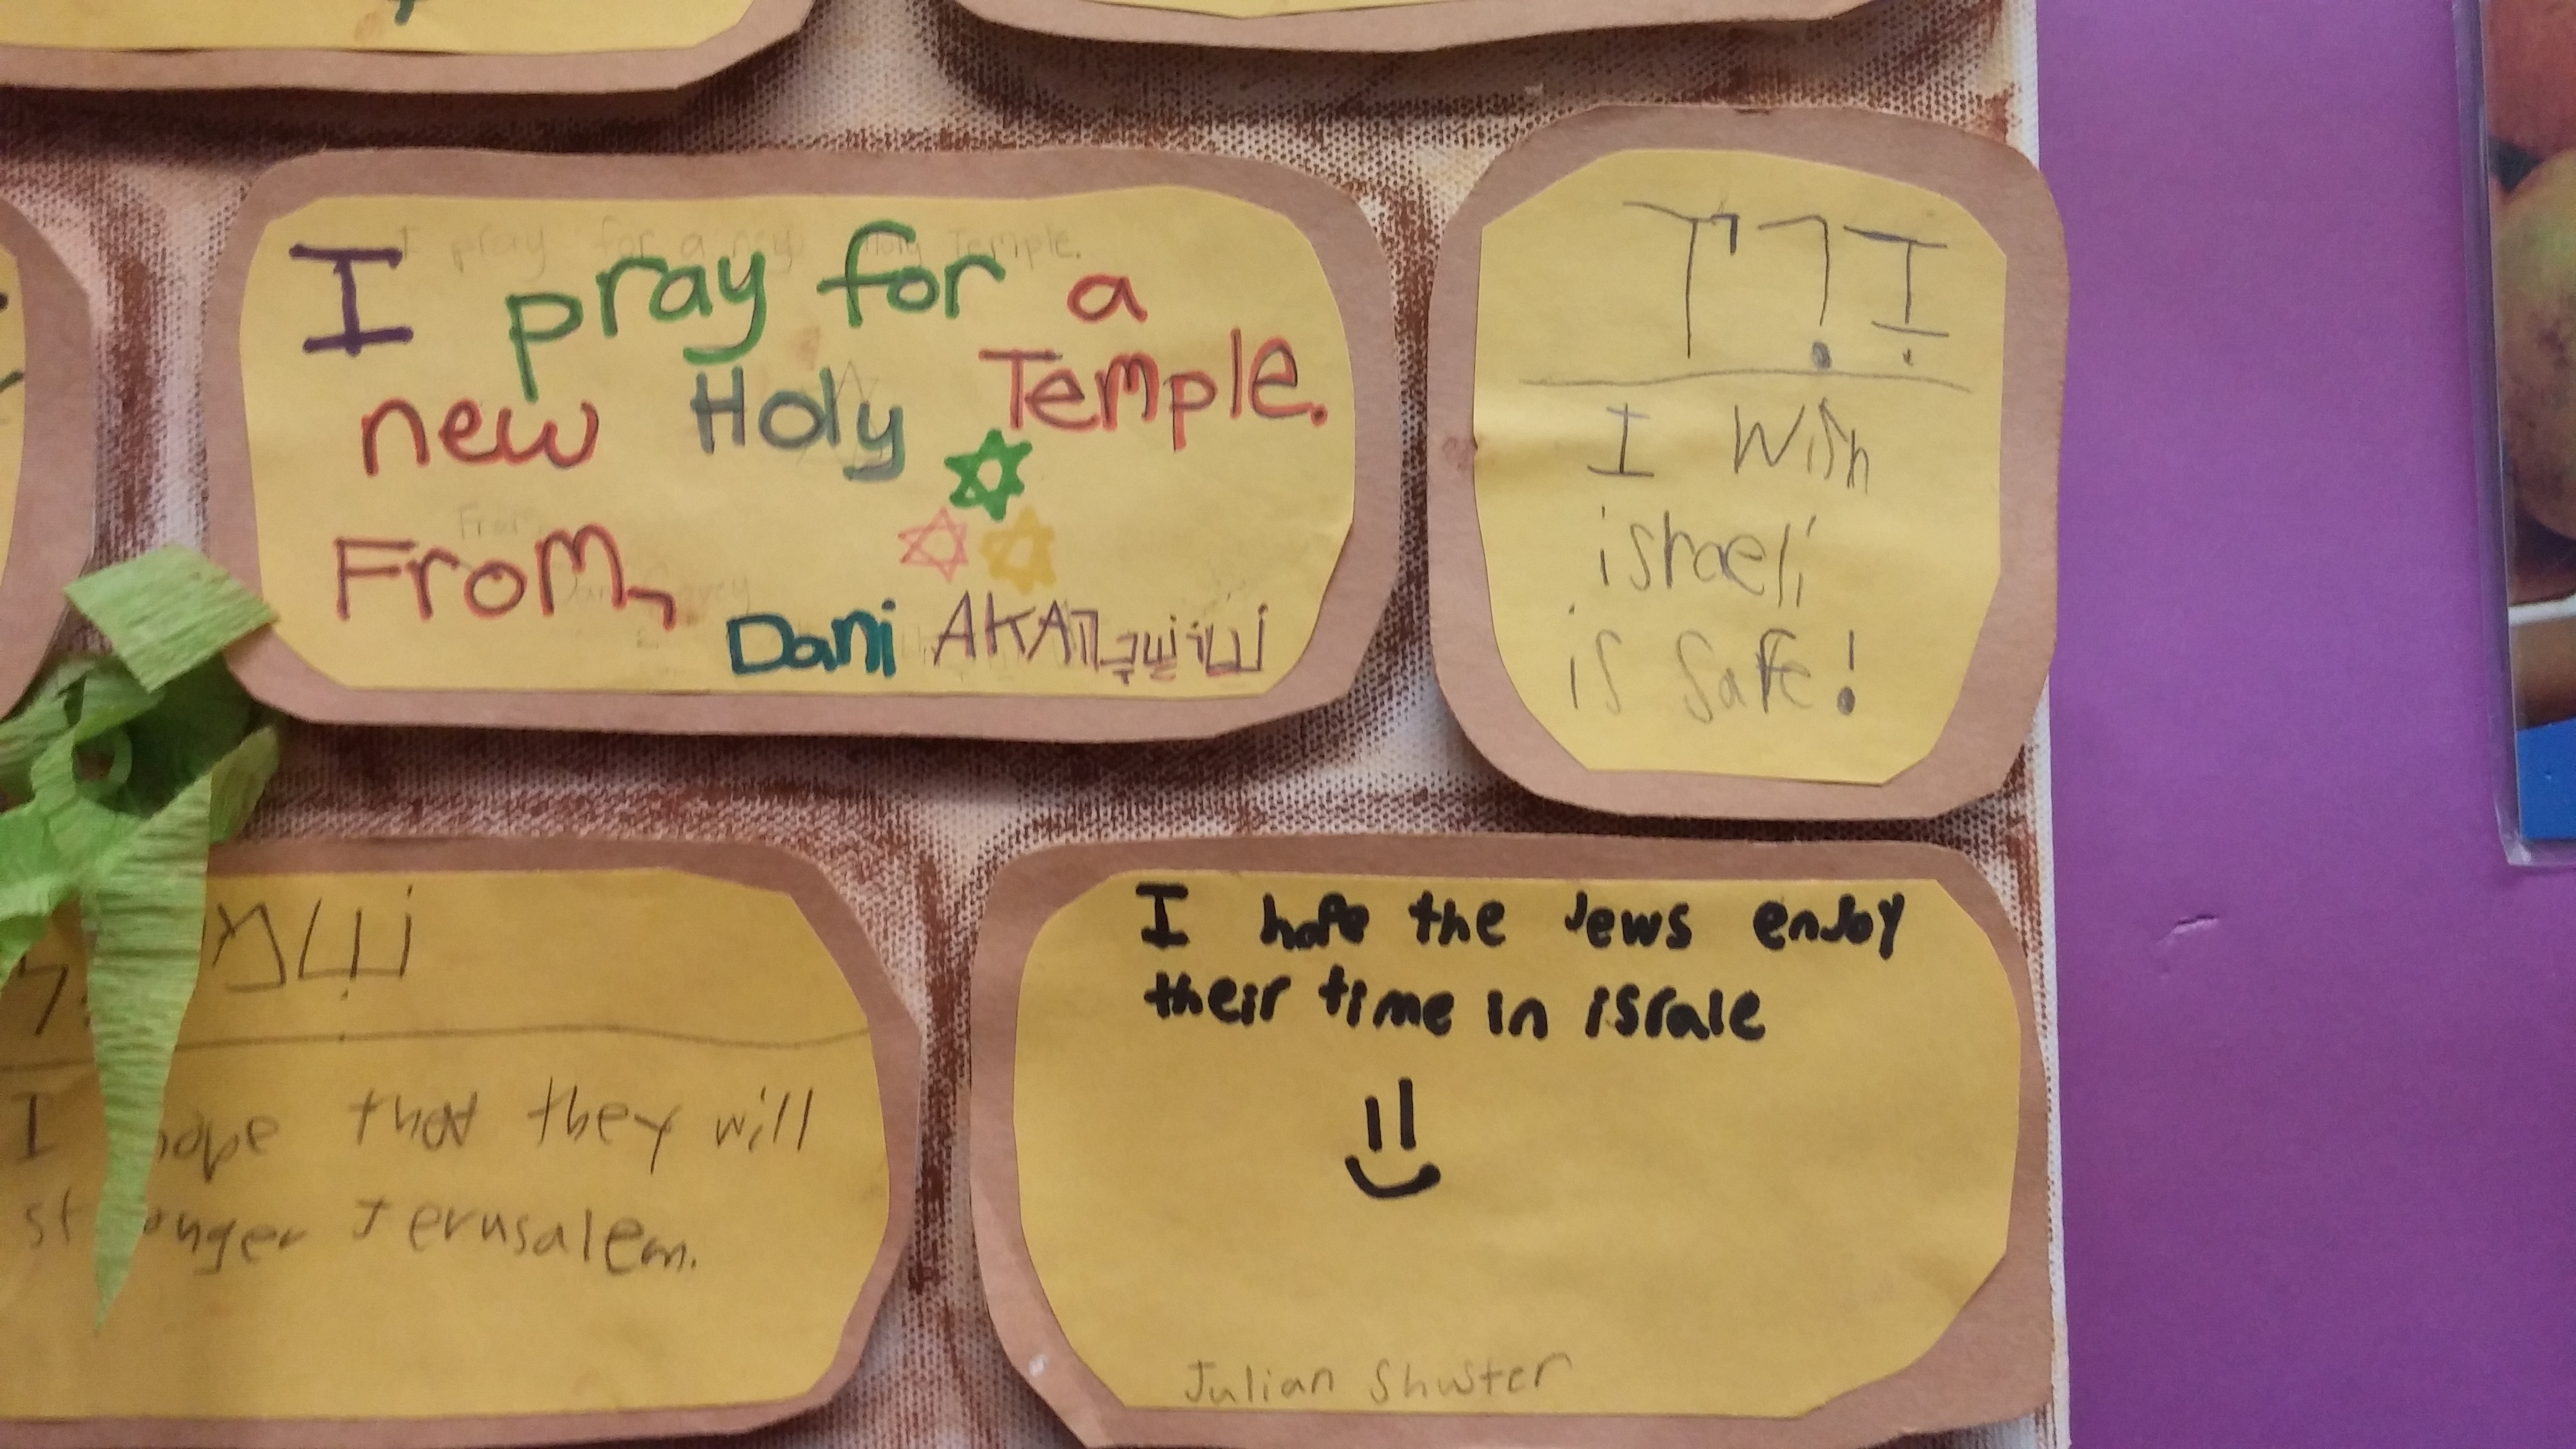 I pray for a
new Holy Temple.
From,
Dani AKA
I Wish
israeli
is safe!
I hope that they will
stronger Jerusalem.
I hope the Jews enjoy
their time in israle
Julian Shuster